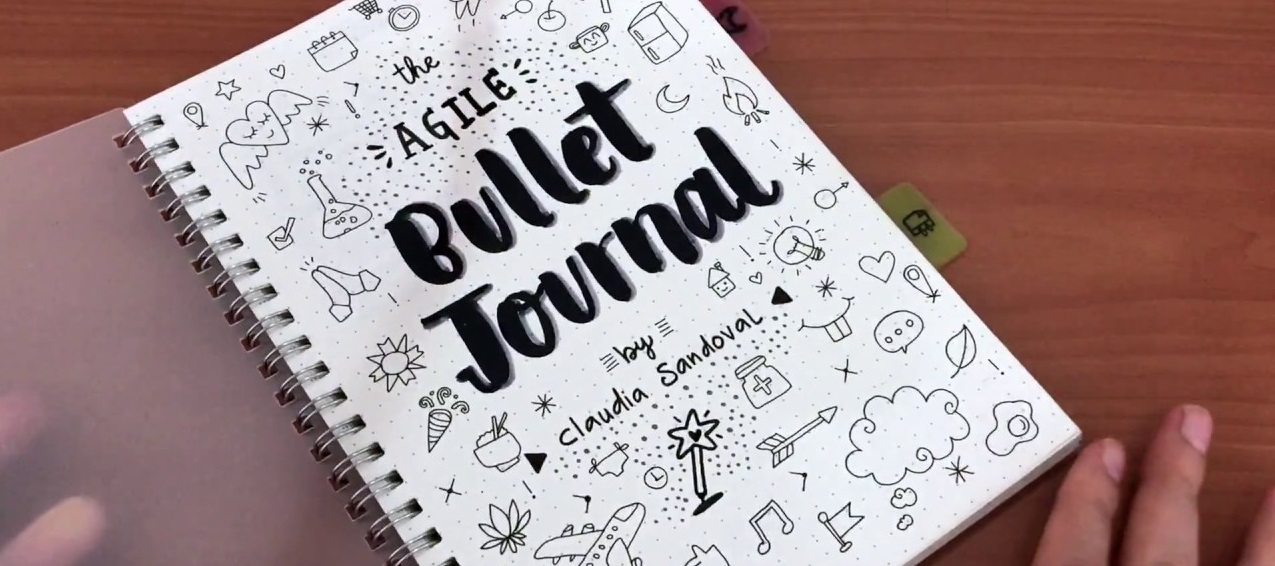 the
AGILE
Bullet
Journal
by
Claudia Sandoval